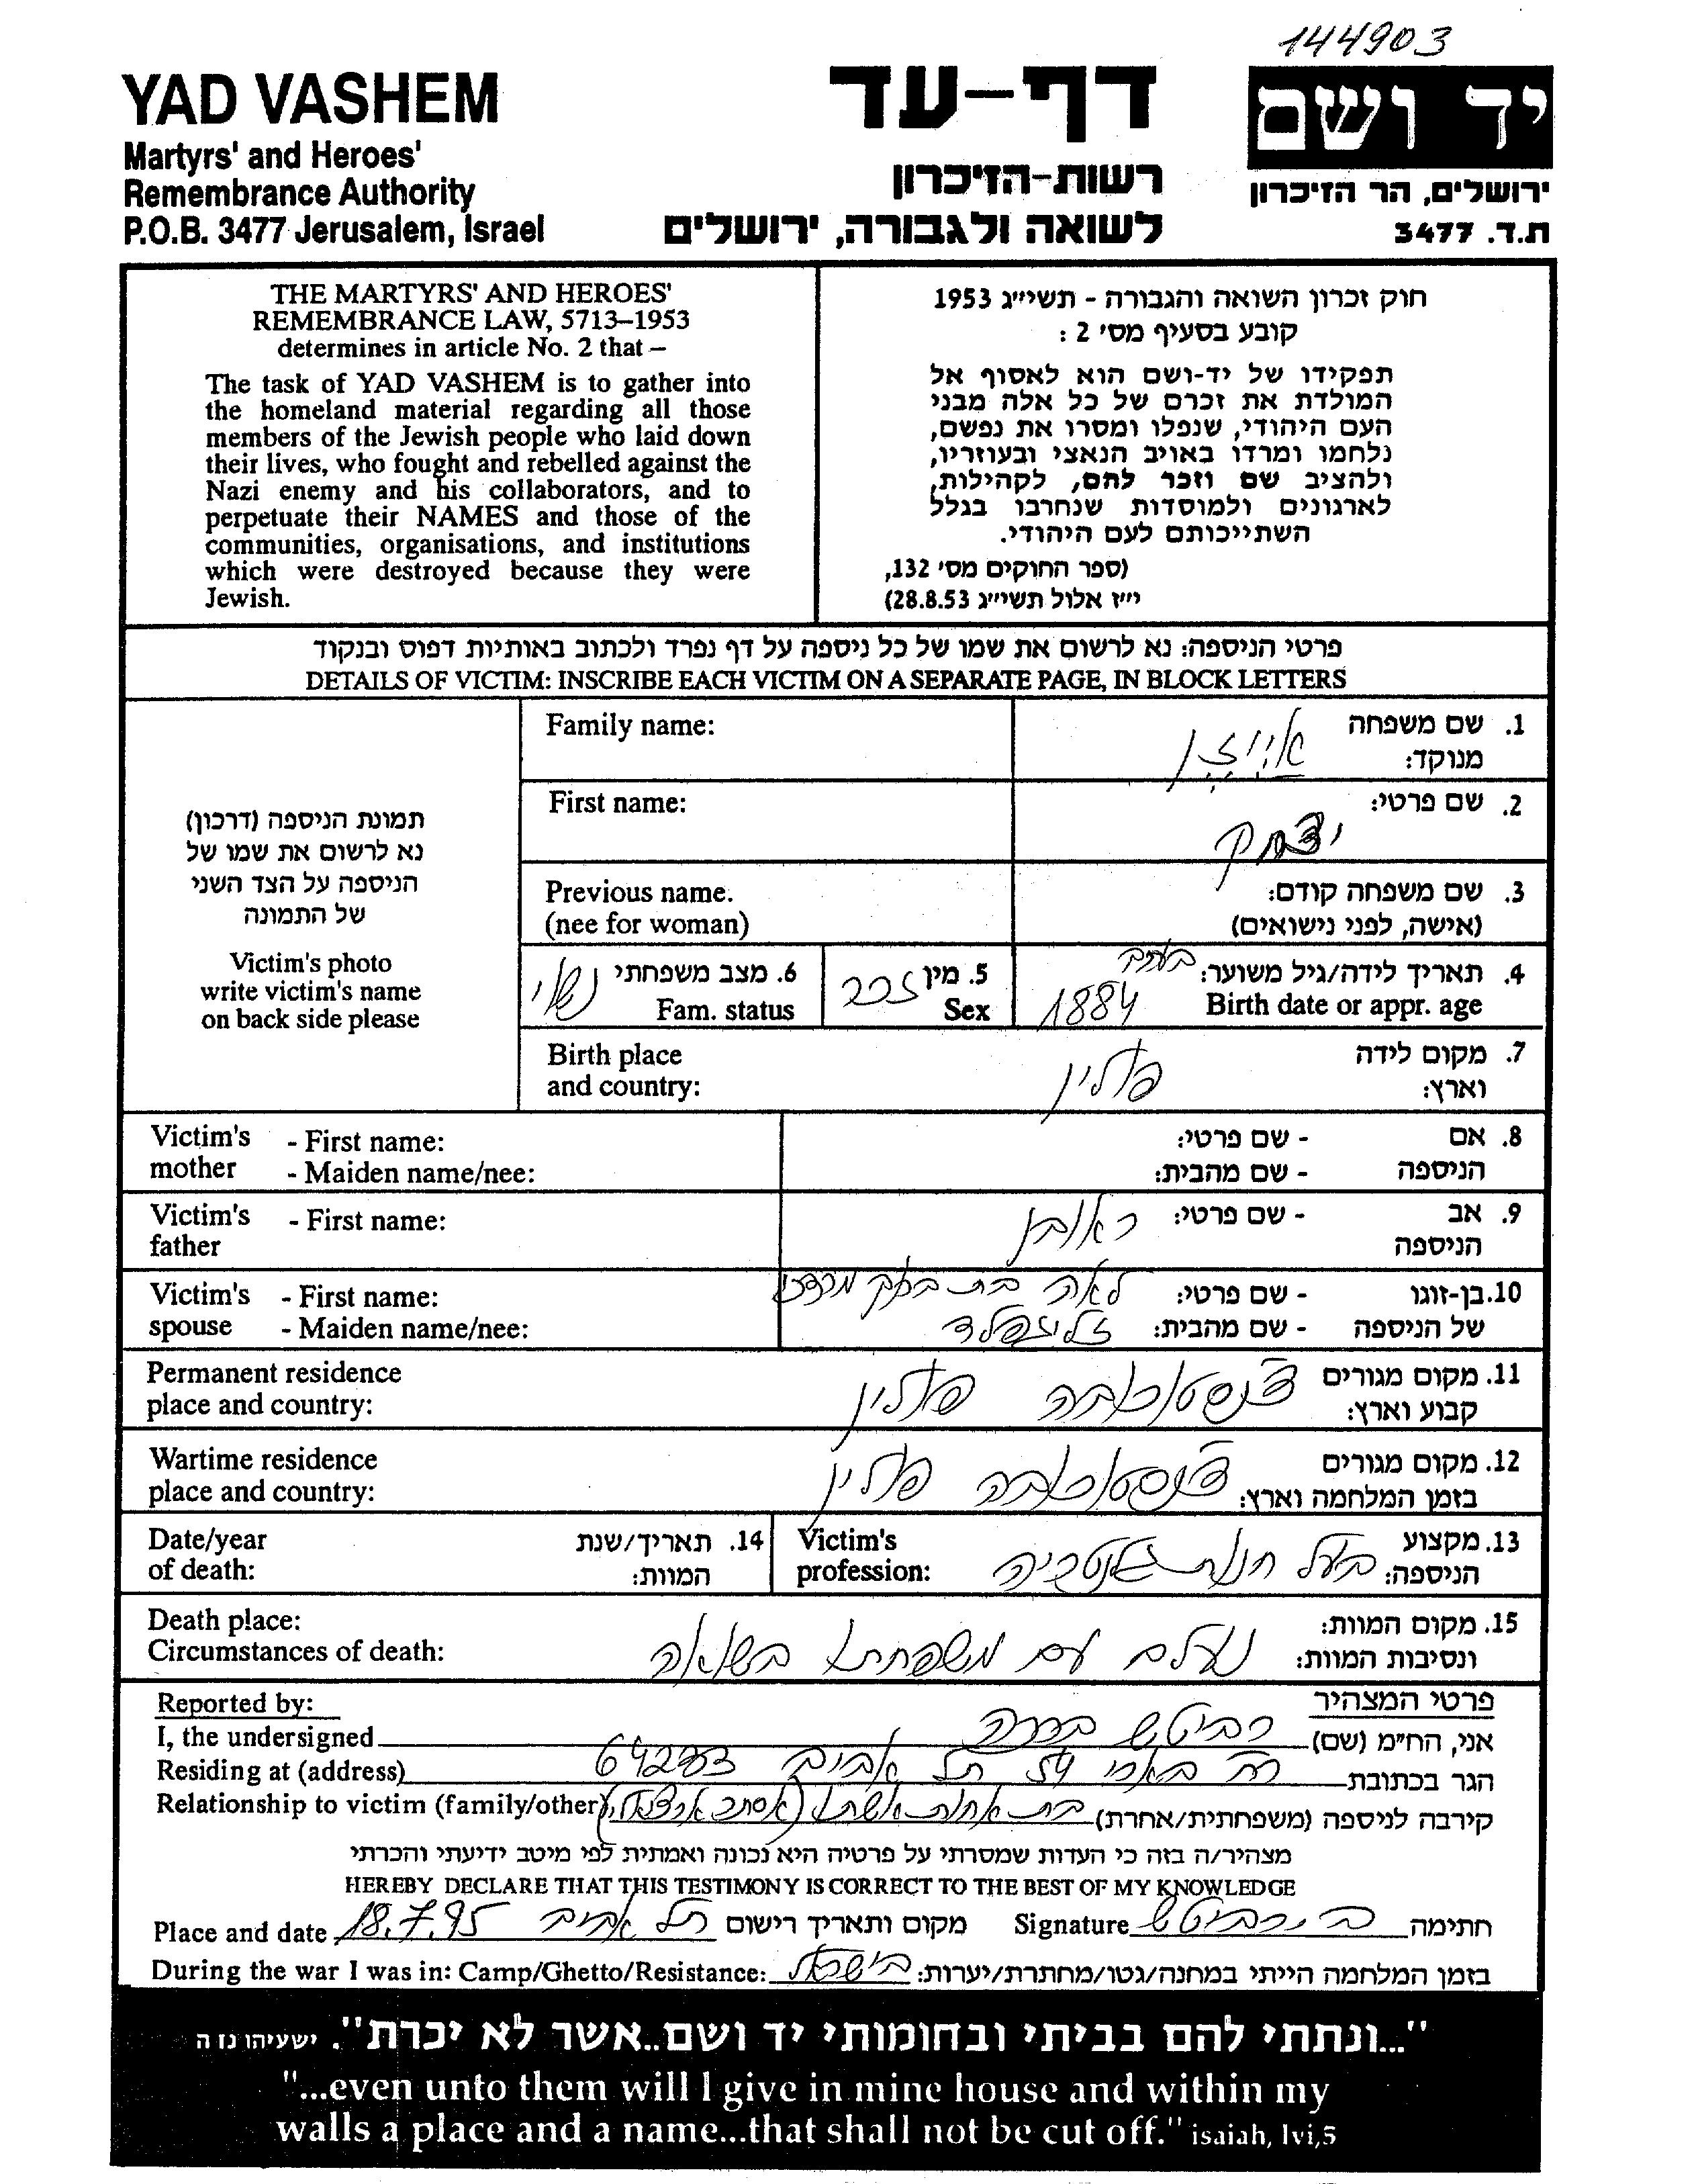 144903
YAD VASHEM
Martyrs' and Heroes'
Remembrance Authority
P.O.B. 3477 Jerusalem, Israel
דף-עד
רשות-הזיכרון
לשואה ולגבורה, ירושלים
יד ושם
ירושלים, הר הזיכרון
ת.ד. 3477
THE MARTYRS' AND HEROES'
REMEMBRANCE LAW, 5713–1953
determines in article No. 2 that –
The task of YAD VASHEM is to gather into
the homeland material regarding all those
members of the Jewish people who laid down
their lives, who fought and rebelled against the
Nazi enemy and his collaborators, and to
perpetuate their NAMES and those of the
communities, organisations, and institutions
which were destroyed because they were
Jewish.
חוק זכרון השואה והגבורה - תשי״ג 1953
קובע בסעיף מס׳ 2 :
תפקידו של יד-ושם הוא לאסוף אל
המולדת את זכרם של כל אלה מבני
העם היהודי, שנפלו ומסרו את נפשם,
נלחמו ומרדו באויב הנאצי ובעוזריו,
ולהציב שם וזכר להם, לקהילות,
לארגונים ולמוסדות שנחרבו בגלל
השתייכותם לעם היהודי.
(ספר החוקים מס׳ 132,
י״ז אלול תשי״ג 28.8.53)
פרטי הניספה: נא לרשום את שמו של כל ניספה על דף נפרד ולכתוב באותיות דפוס ובנקוד
DETAILS OF VICTIM: INSCRIBE EACH VICTIM ON A SEPARATE PAGE, IN BLOCK LETTERS
תמונת הניספה (דרכון)
נא לרשום את שמו של
הניספה על הצד השני
של התמונה
Victim's photo
write victim's name
on back side please
Family name: אייזן 1. שם משפחה
מנוקד:
First name: יצחק 2. שם פרטי:
Previous name. 3. שם משפחה קודם:
(nee for woman) (אישה, לפני נישואים)
נשוי 6. מצב משפחתי זכר 5. מין בערך 4. תאריך לידה/גיל משוער:
Fam. status Sex 1884 Birth date or appr. age
Birth place פולין 7. מקום לידה
and country: וארץ:
Victim's - First name: - שם פרטי: 8. אם
mother - Maiden name/nee: - שם מהבית: הניספה
Victim's - First name: ראובן - שם פרטי: 9. אב
father הניספה
Victim's - First name: לאה בת ברוך מרדכי - שם פרטי: 10. בן-זוגו
spouse - Maiden name/nee: זליגפלד - שם מהבית: של הניספה
Permanent residence צ'נסטוכובה פולין 11. מקום מגורים
place and country: קבוע וארץ:
Wartime residence צ'נסטוכובה פולין 12. מקום מגורים
place and country: בזמן המלחמה וארץ:
Date/year 14. תאריך/שנת Victim's בעל חנות גלנטריה 13. מקצוע
of death: המוות: profession: הניספה:
Death place: נעלם עם משפחתו בשואה 15. מקום המוות:
Circumstances of death: ונסיבות המוות:
Reported by: פרטי המצהיר
I, the undersigned רביטש ברכה אני, הח״מ (שם)
Residing at (address) 64233 תל אביב 54 הגר בכתובת
Relationship to victim (family/other) בת אחות אשתו (אסתר קירבה לניספה (משפחתית/אחרת)
מצהיר/ה בזה כי העדות שמסרתי על פרטיה היא נכונה ואמתית לפי מיטב ידיעתי והכרתי
HEREBY DECLARE THAT THIS TESTIMONY IS CORRECT TO THE BEST OF MY KNOWLEDGE
Place and date 18.7.95 תל אביב מקום ותאריך רישום Signature ב. רביטש חתימה
During the war I was in: Camp/Ghetto/Resistance: בישראל בזמן המלחמה הייתי במחנה/גטו/מחתרת/יערות:
"...ונתתי להם בביתי ובחומותי יד ושם..אשר לא יכרת". ישעיהו נז ה
"...even unto them will I give in mine house and within my
walls a place and a name...that shall not be cut off." isaiah, lvi,5